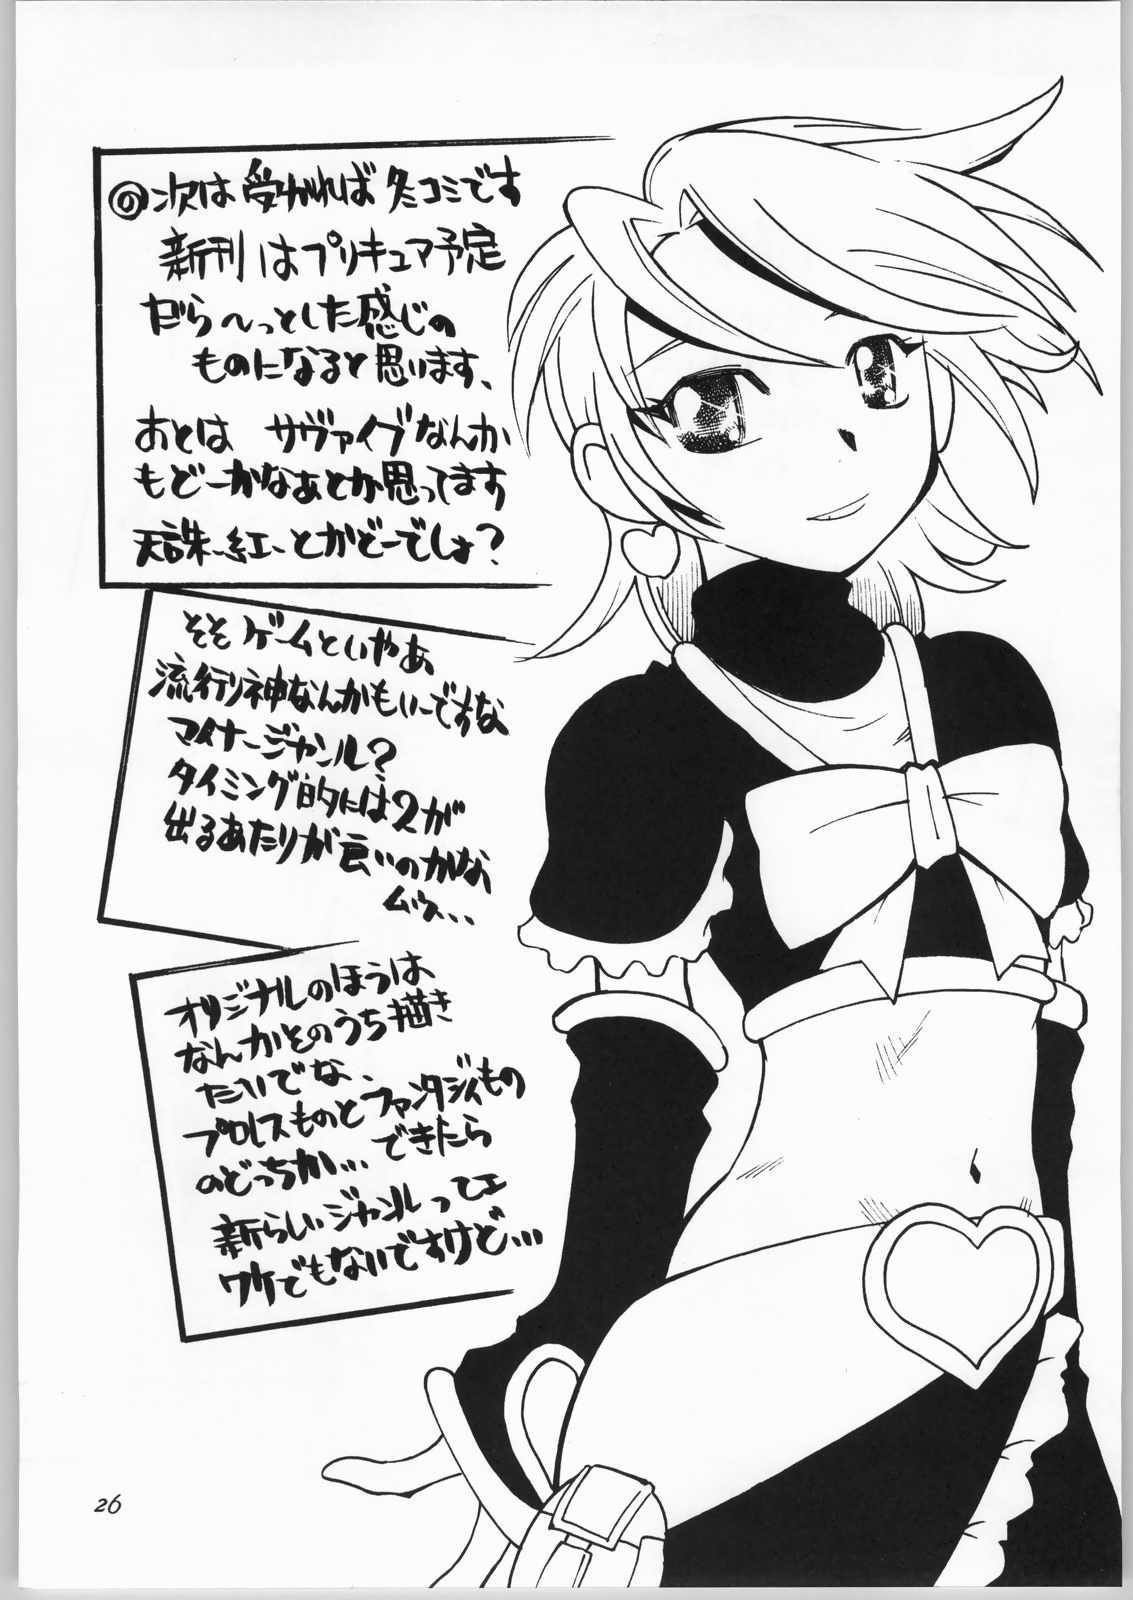 ◎次は受かれば冬コミです
新刊はプリキュア予定
だら～っとした感じの
ものになると思います、
おとは サヴァイブなんか
もどーかなぁとか思ってます
天誅-紅-とかどーでしょ?
そそゲームといやぁ、
流行り神なんかもいーですな
マイナージャンル?
タイミング的には2が
出るあたりが良いのかな
ムゥ...
オリジナルのほうは
なんかそのうち描き
たいでな、
プロレスものとファンタジィもの
のどっちか... できたら
新らしいジャンルってェ
ワケでもないですけど...
26